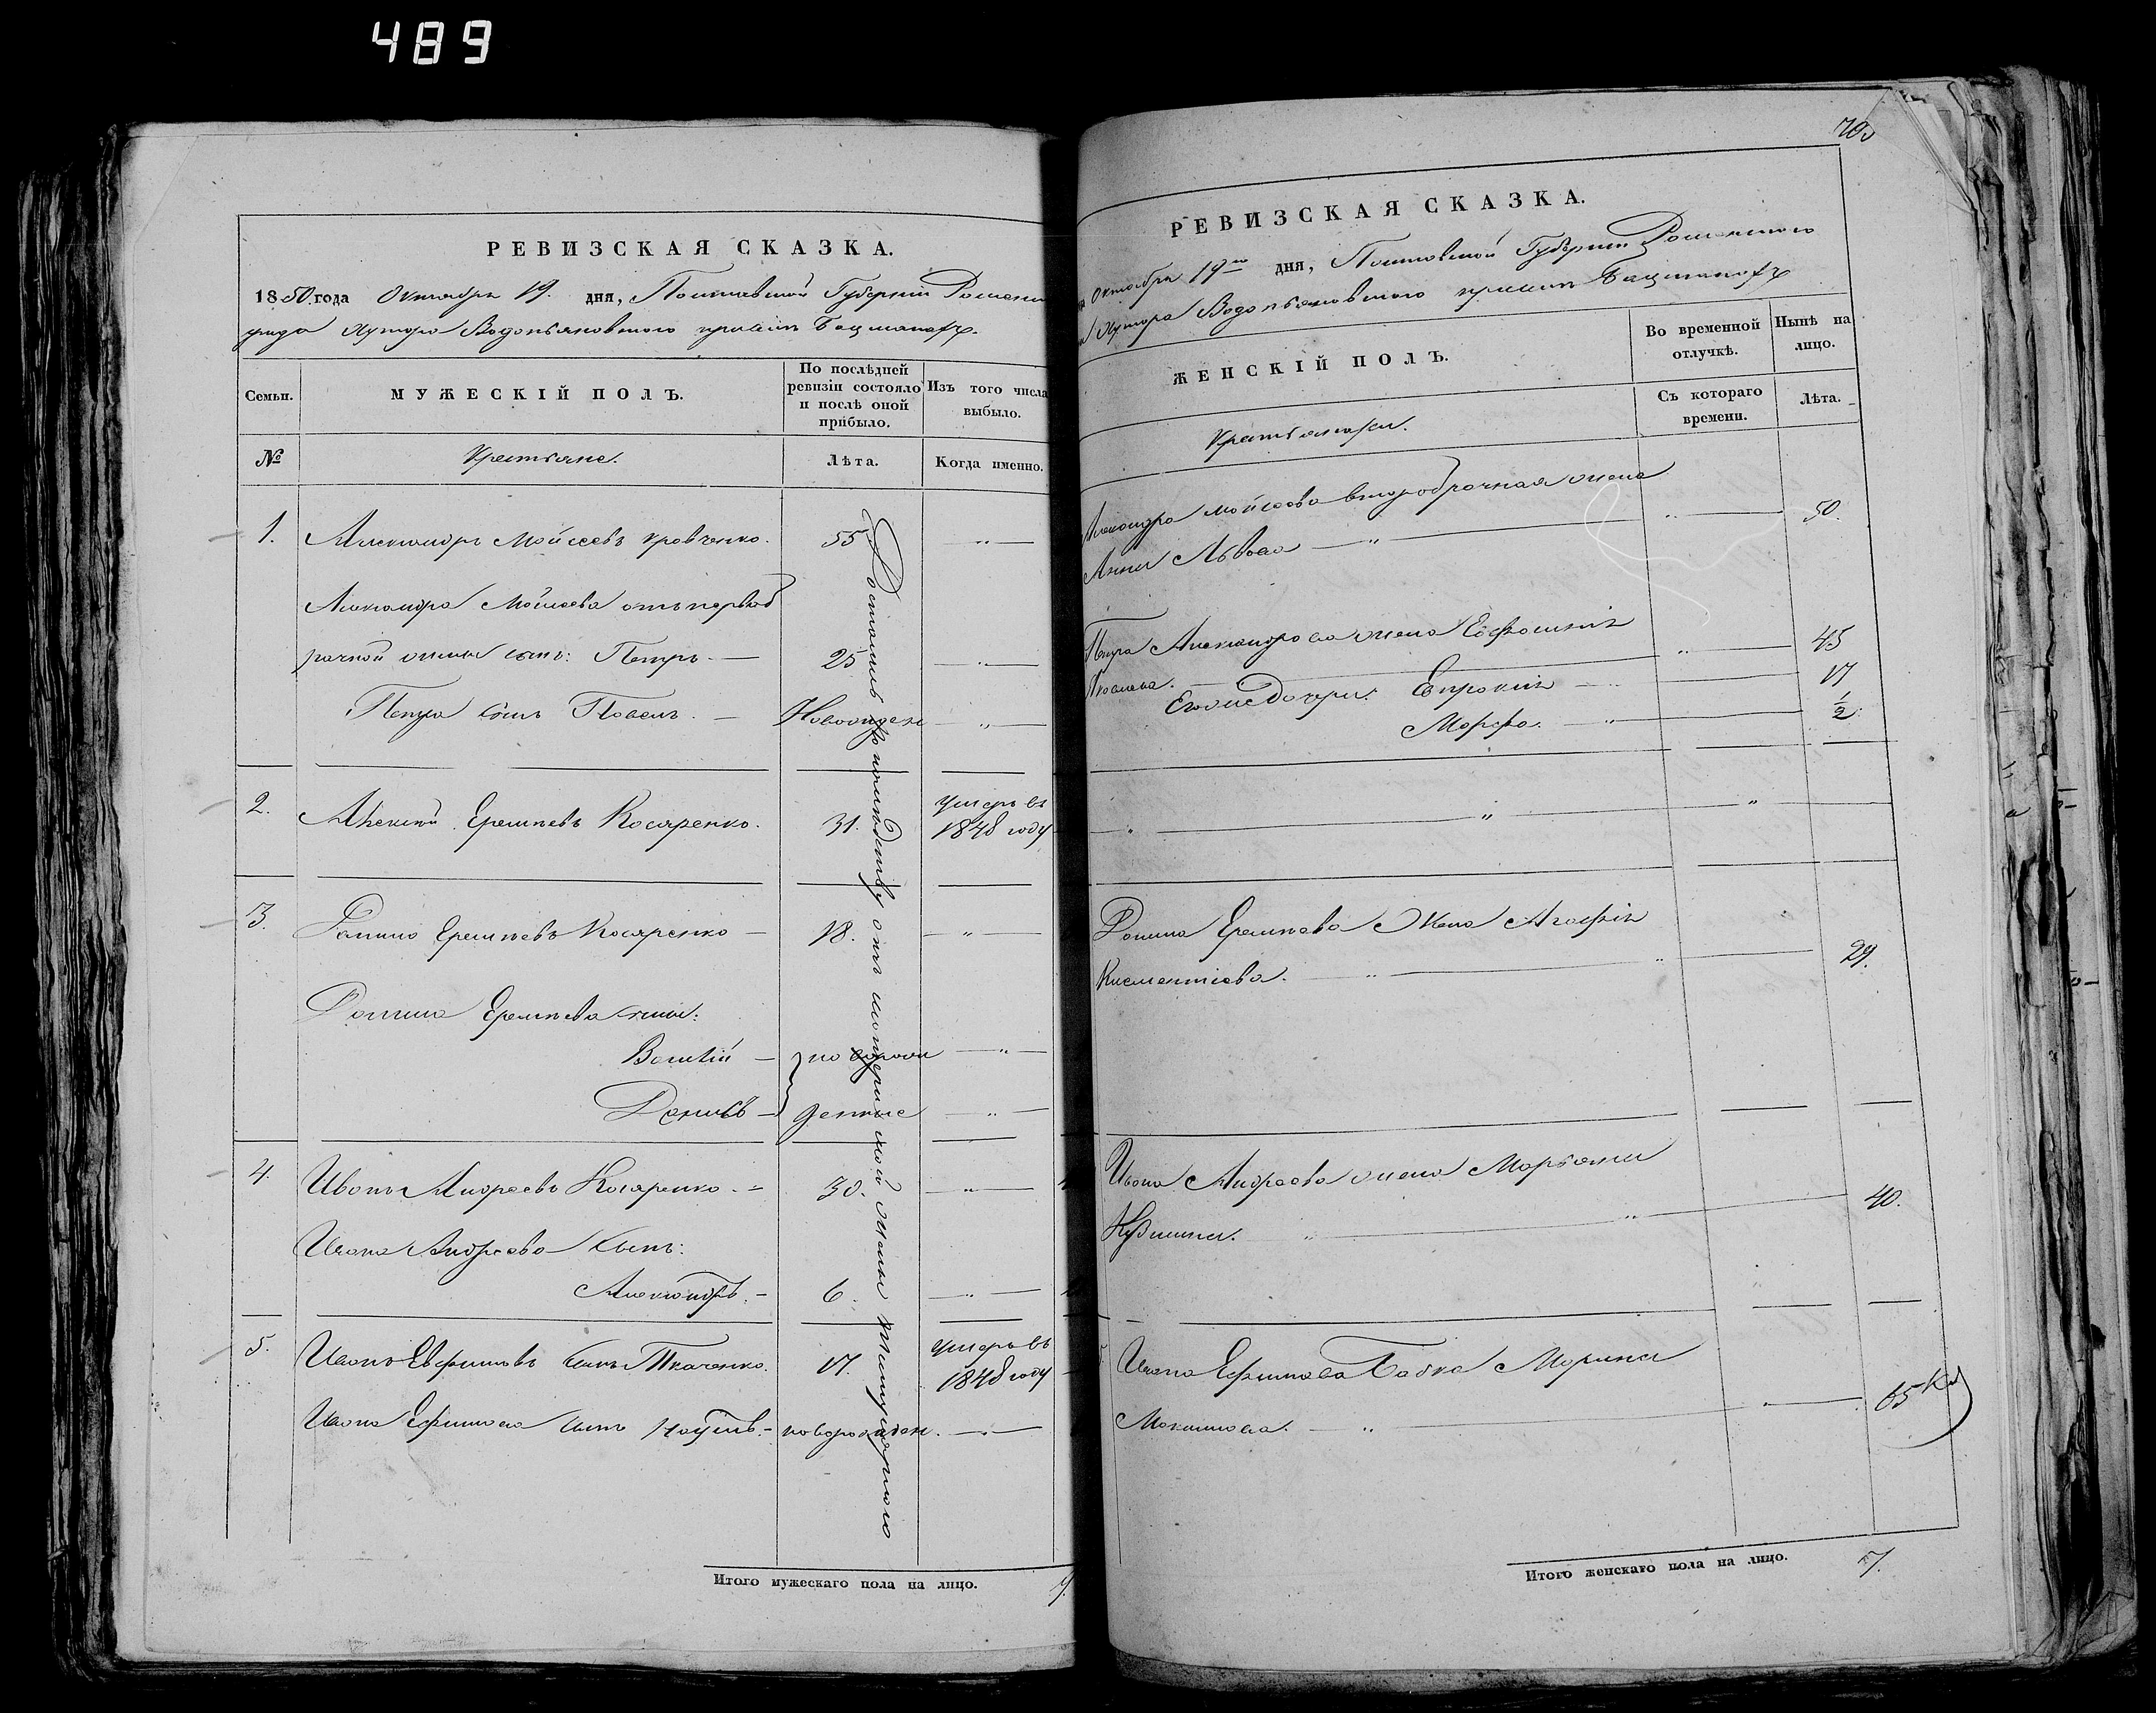 489
РЕВИЗСКАЯ СКАЗКА.
1850 года Октября 19. дня, Полтавской Губернии
Хутора Водопьяновского при
Семьи.
МУЖЕСКІЙ ПОЛЪ.
По послѣдней
ревизіи состояло
и послѣ оной
прибыло.
Изъ того числа
выбыло.
№
Крестьяне.
Лѣта.
Когда именно.
1. Александръ Мойсеевъ Кравченко. 55
Александра Мойсеева отъ первоб
рачной жены сынъ: Петръ. 25
Петра сынъ Павелъ. Новорожден
2. Алексей Еремѣевъ Косяренко. 31. умеръ въ
1848 году
3. Данило Еремѣевъ Косяренко 18.
Данила Еремѣева сыны:
Василій } новорож
Денисъ } денные
4. Иванъ Андреевъ Косяренко. 30.
Ивана Андреева сынъ:
Александръ. 6.
5. Иванъ Евфимовъ сынъ Ткаченко. 17. умеръ въ
1848 году
Ивана Ефимова сынъ Наумъ. новорожден.
Достались по наслѣдству отъ
Итого мужескаго пола на лицо.
7.
РЕВИЗСКАЯ СКАЗКА.
Октября 19го дня, Полтавской Губернии
Хутора Водопьяновского при
ЖЕНСКІЙ ПОЛЪ.
Во временной
отлучкѣ.
Нынѣ на
лицо.
Съ котораго
времени.
Лѣта.
Крестьянки.
Александра Мойсеева второбрачная жена
Анна Львова 50.
Петра Александрова жена Евфросинія
Яковлева. 45
Его же дочери: Евпраксія 17
Марфа. 1/2
Данила Еремѣева Жена Агафія
Климентіева. 29.
Ивана Андреева жена Марьяна
40.
Ивана Ефимова Бабка Марина
Максимова. 65
Итого женскаго пола на лицо. 7.